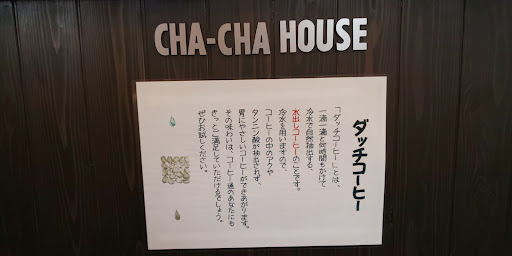 CHA-CHA HOUSE
ダッチコーヒー
「ダッチコーヒー」とは、
一滴一滴と何時間もかけて
冷水で自然抽出する、
水出しコーヒーのことです。
冷水を用いますので、
コーヒーの中のアクや
タンニン酸が抽出されず、
胃にやさしいコーヒーができあがります。
その味わいは、コーヒー通のあなたにも
きっとご満足していただけるでしょう。
ぜひお試しください。